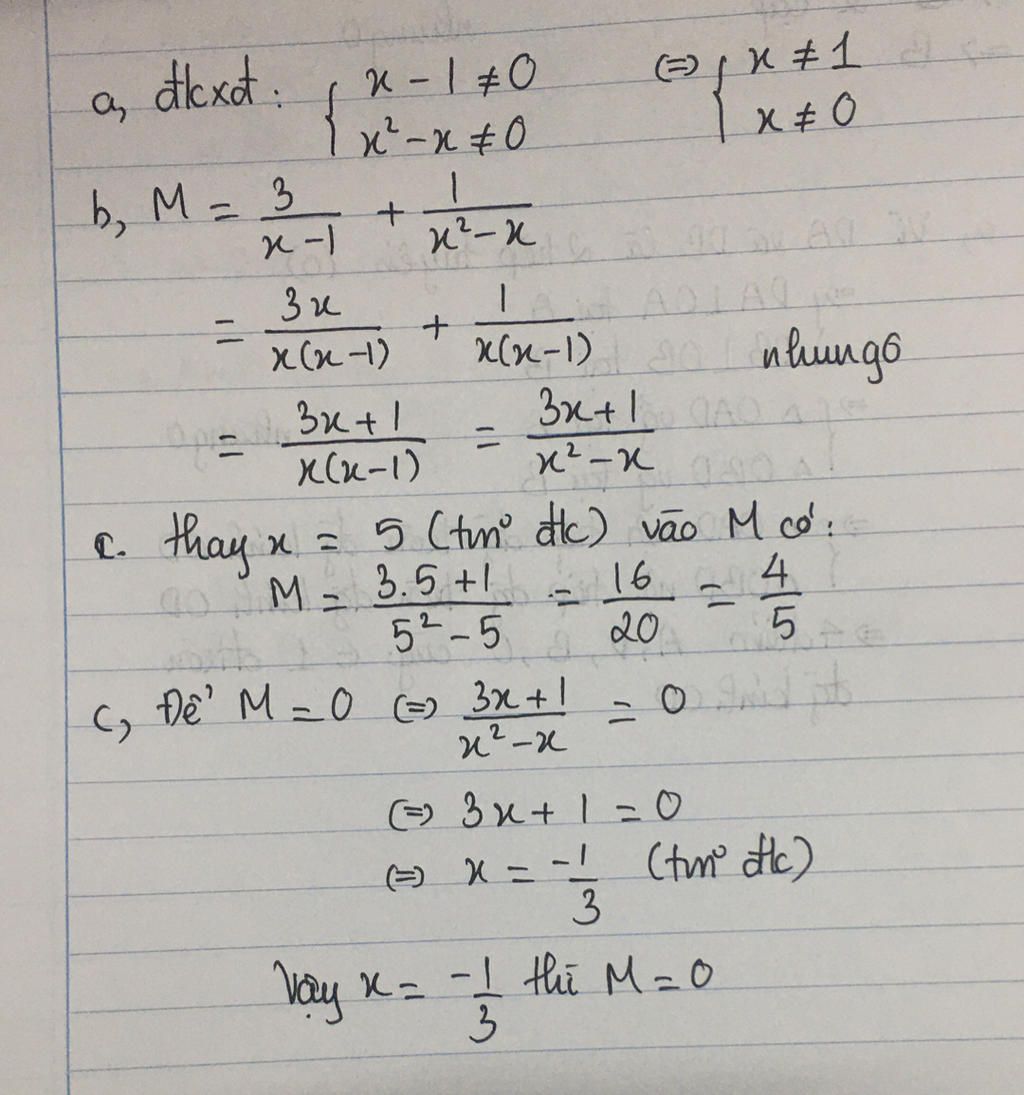 a, đkxđ: { x - 1 ≠ 0 ⇔ { x ≠ 1
x² - x ≠ 0 x ≠ 0
b, M = 3/(x - 1) + 1/(x² - x)
= 3x/(x(x - 1)) + 1/(x(x - 1))
nhung6
= (3x + 1)/(x(x - 1)) = (3x + 1)/(x² - x)
c. thay x = 5 (tm° đk) vào M có:
M = (3.5 + 1)/(5² - 5) = 16/20 = 4/5
c, Để M = 0 ⇔ (3x + 1)/(x² - x) = 0
⇔ 3x + 1 = 0
⇔ x = -1/3 (tm° đk)
Vậy x = -1/3 thì M = 0